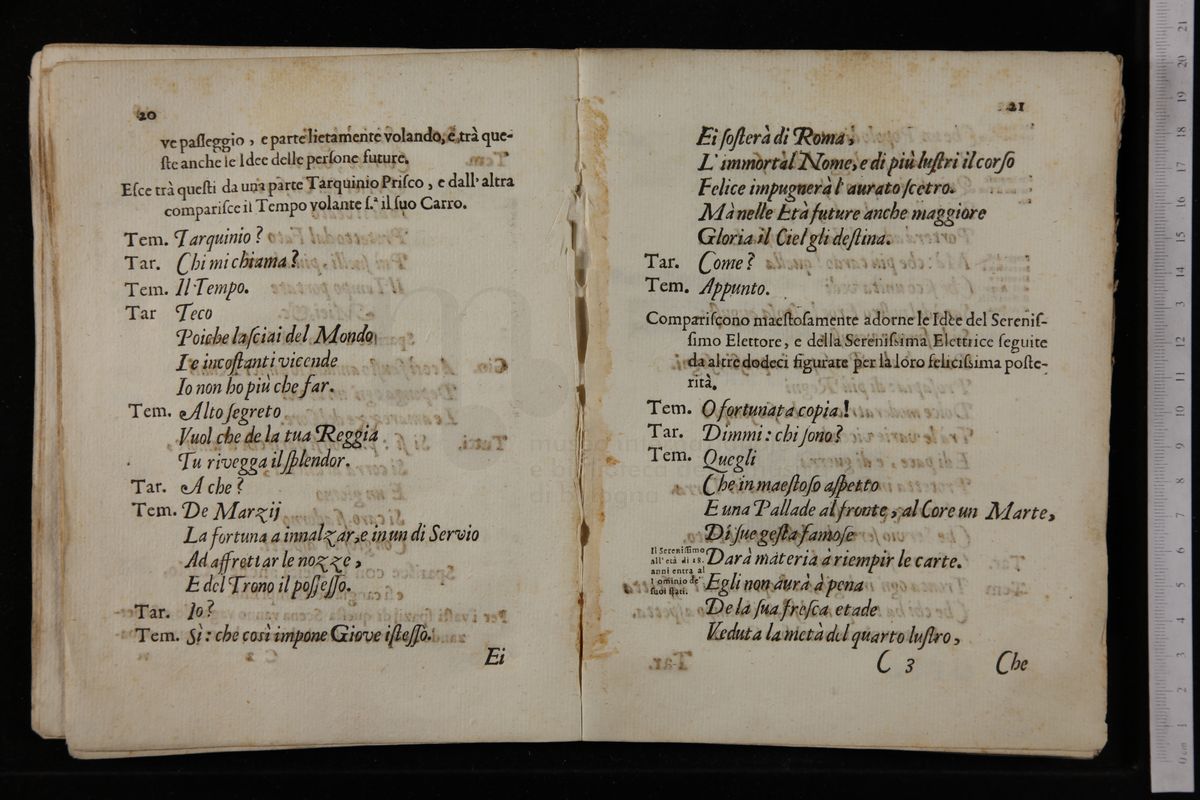 20
ve paſſeggio , e parte lietamente volando, e trà que-
ſte anche le Idee delle perſone future.
Eſce trà queſti da una parte Tarquinio Priſco , e dall' altra
compariſce il Tempo volante ſ.ª il ſuo Carro.
Tem. Tarquinio ?
Tar. Chi mi chiama ?
Tem. Il Tempo.
Tar Teco
Poiche laſciai del Mondo
Le incoſtanti vicende
Io non ho più che far.
Tem. Alto ſegreto
Vuol che de la tua Reggia
Tu rivegga il ſplendor.
Tar. A che ?
Tem. De Marzij
La fortuna a innalzar, e in un di Servio
Ad affrettar le nozze ,
E del Trono il poſſeſſo.
Tar. Io ?
Tem. Sì : che così impone Giove iſteſſo.
Ei
21
Ei ſoſterà di Roma ,
L' immortal Nome, e di più luſtri il corſo
Felice impugnerà l' aurato ſcetro.
Mà nelle Età future anche maggiore
Gloria il Ciel gli deſtina.
Tar. Come ?
Tem. Appunto.
Compariſcono maeſtoſamente adorne le Idee del Sereniſ-
ſimo Elettore, e della Sereniſsima Elettrice ſeguite
da altre dodeci figurate per la loro feliciſsima poſte-
rità.
Tem. O fortunata copia !
Tar. Dimmi : chi ſono ?
Tem. Quegli
Che in maeſtoſo aſpetto
E una Pallade al fronte , al Core un Marte,
Di ſue geſta famoſe
Darà materia à riempir le carte.
Il Sereniſſimo
all' età di 18.
anni entra al
Dominio de'
ſuoi ſtati.
Egli non aurà à pena
De la ſua freſca etade
Veduta la metà del quarto luſtro ,
C 3
Che